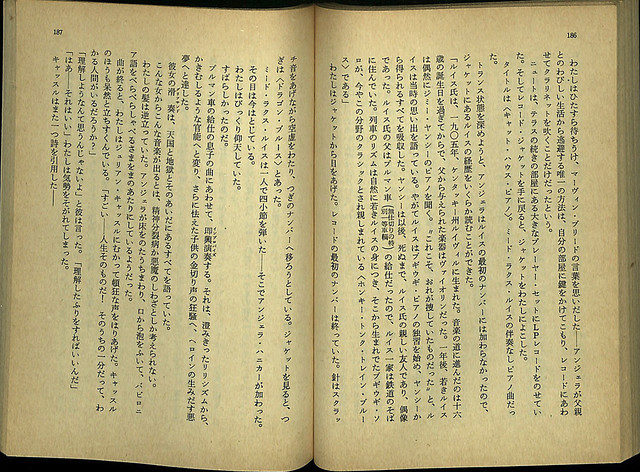 186
わたしはひたすら待ちうけ、マーヴィン・ブリードの言葉を思いだした——アンジェラが父親
とのわびしい生活から逃避する唯一の方法は、自分の部屋に鍵をかけてこもり、レコードにあわ
せてクラリネットを吹くことだけだったという。
ニュートは、テラスの続きの部屋にある大きなプレーヤー・セットにLPレコードをのせてい
た。そしてレコード・ジャケットを手に戻ると、ジャケットをわたしによこした。
タイトルは〈キャット・ハウス・ピアノ〉。ミード・ラクス・ルイスの伴奏なしピアノ曲だっ
た。
トランス状態を深めようと、アンジェラはルイスの最初のナンバーには加わらなかったので、
ジャケットにあるルイスの経歴をいくらか読むことができた。
「ルイス氏は、一九〇五年、ケンタッキー州ルイヴィルに生まれた。音楽の道に進んだのは十六
歳の誕生日を過ぎてからで、父から与えられた楽器はヴァイオリンだった。一年後、若きルイス
は偶然にジミー・ヤンシーのピアノを聞く。“これこそ、おれが捜していたものだった”と、ル
イスは当時の思い出を語っている。やがてルイスはブギウギ・ピアノの独習を始め、ヤンシーか
ら得られるすべてを吸収した。ヤンシーは以後、死ぬまで、ルイス氏の親しい友人であり、偶像
であった。ルイス氏の父はプルマン車の給仕だったので、ルイス一家は鉄道のそば
に住んでいた。列車のリズムは自然に若きルイスの身につき、そこから生まれたブギウギ・ソ
ロが、今やこの分野のクラシックとされ親しまれている〈ホンキー・トンク・トレイン・ブルー
ス〉である」
わたしはジャケットから目をあげた。レコードの最初のナンバーは終っていた。針はスクラッ
187
チ音をあげながら空虚をわたり、つぎのナンバーへ移ろうとしている。ジャケットを見ると、つ
ぎは〈ドラゴン・ブルース〉とあった。
ミード・ラクス・ルイスは一人で四小節を弾いた——そこでアンジェラ・ハニカーが加わった。
その目は今は閉じている。
わたしはびっくり仰天していた。
すばらしかったのだ。
プルマン車の給仕の息子の曲にあわせて、即興演奏する。それは、澄みきったリリシズムから、
かきむしるような官能へと変り、さらに怯えた子供の金切り声の狂騒へ、ヘロインの生みだす悪
夢へと達した。
彼女の滑奏は、天国と地獄とそのあいだにあるすべてを語っていた。
こんな女からこんな音楽が出るとは、精神分裂病か悪魔のしわざとしか考えられない。
わたしの髪は逆立っていた。アンジェラが床をのたうちまわり、口から泡をふいて、バビロニ
ア語をぺらぺらしゃべるさまをまのあたりにしているようだった。
曲が終ると、わたしはジュリアン・キャッスルにむかって頓狂な声をはりあげた。キャッスル
のほうも呆然と立ちすくんでいる。「すごい——人生そのものだ！　そのうちの一分だって、わ
かる人間がいるだろうか？」
「理解しようなんて思うんじゃないよ」と彼は言った。「理解したふりをすればいいんだ」
「はあ——それはいい」わたしは気勢をそがれてしまった。
キャッスルはまた一つ詩を引用した——